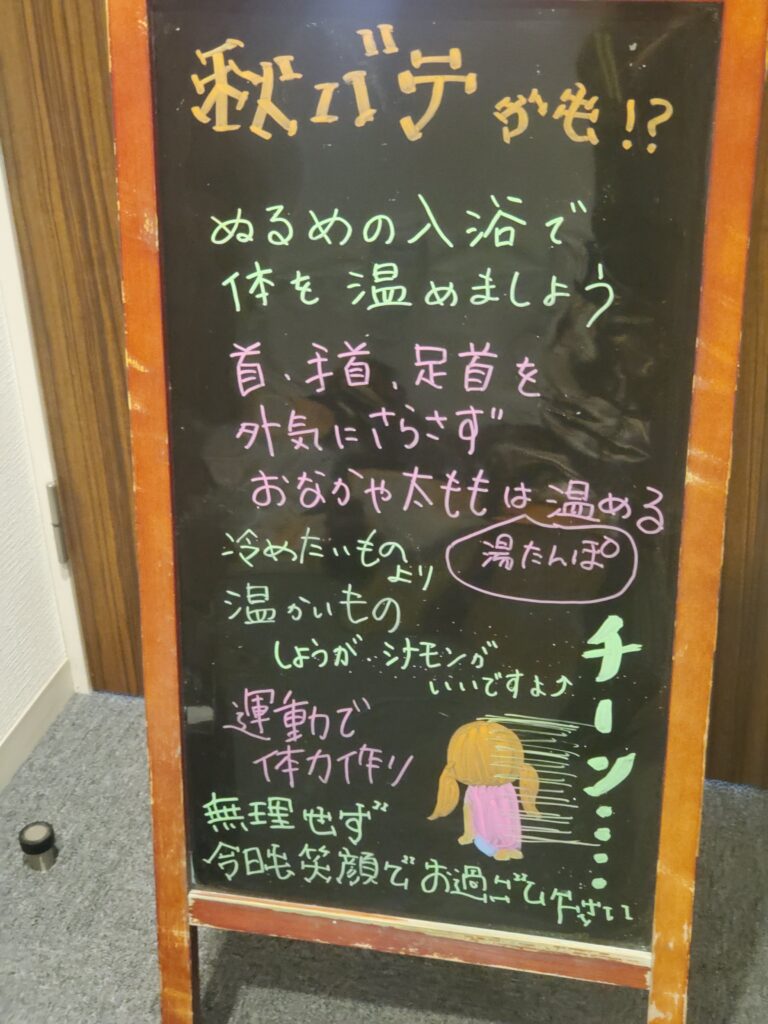 秋バテかも!?
ぬるめの入浴で
体を温めましょう
首、手首、足首を
外気にさらさず
おなかや太ももは温める
湯たんぽ
冷めたいもの
より
温かいもの
しょうが・シナモンが
いいですよ⤴
チーン・・・・
運動で
体力作り
無理せず
今日も笑顔でお過ごし下さい